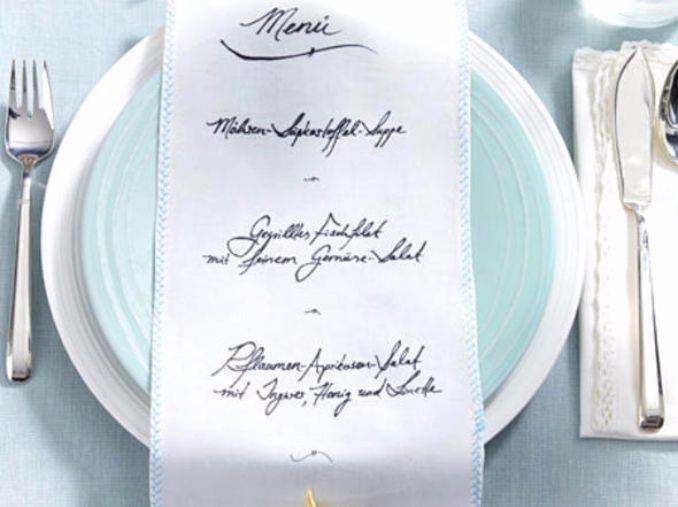 Menü
Möhren-Süßkartoffel-Suppe
Gegrilltes Fischfilet
mit feinem Gemüse-Salat
Pflaumen-Aprikosen-Salat
mit Ingwer, Honig und